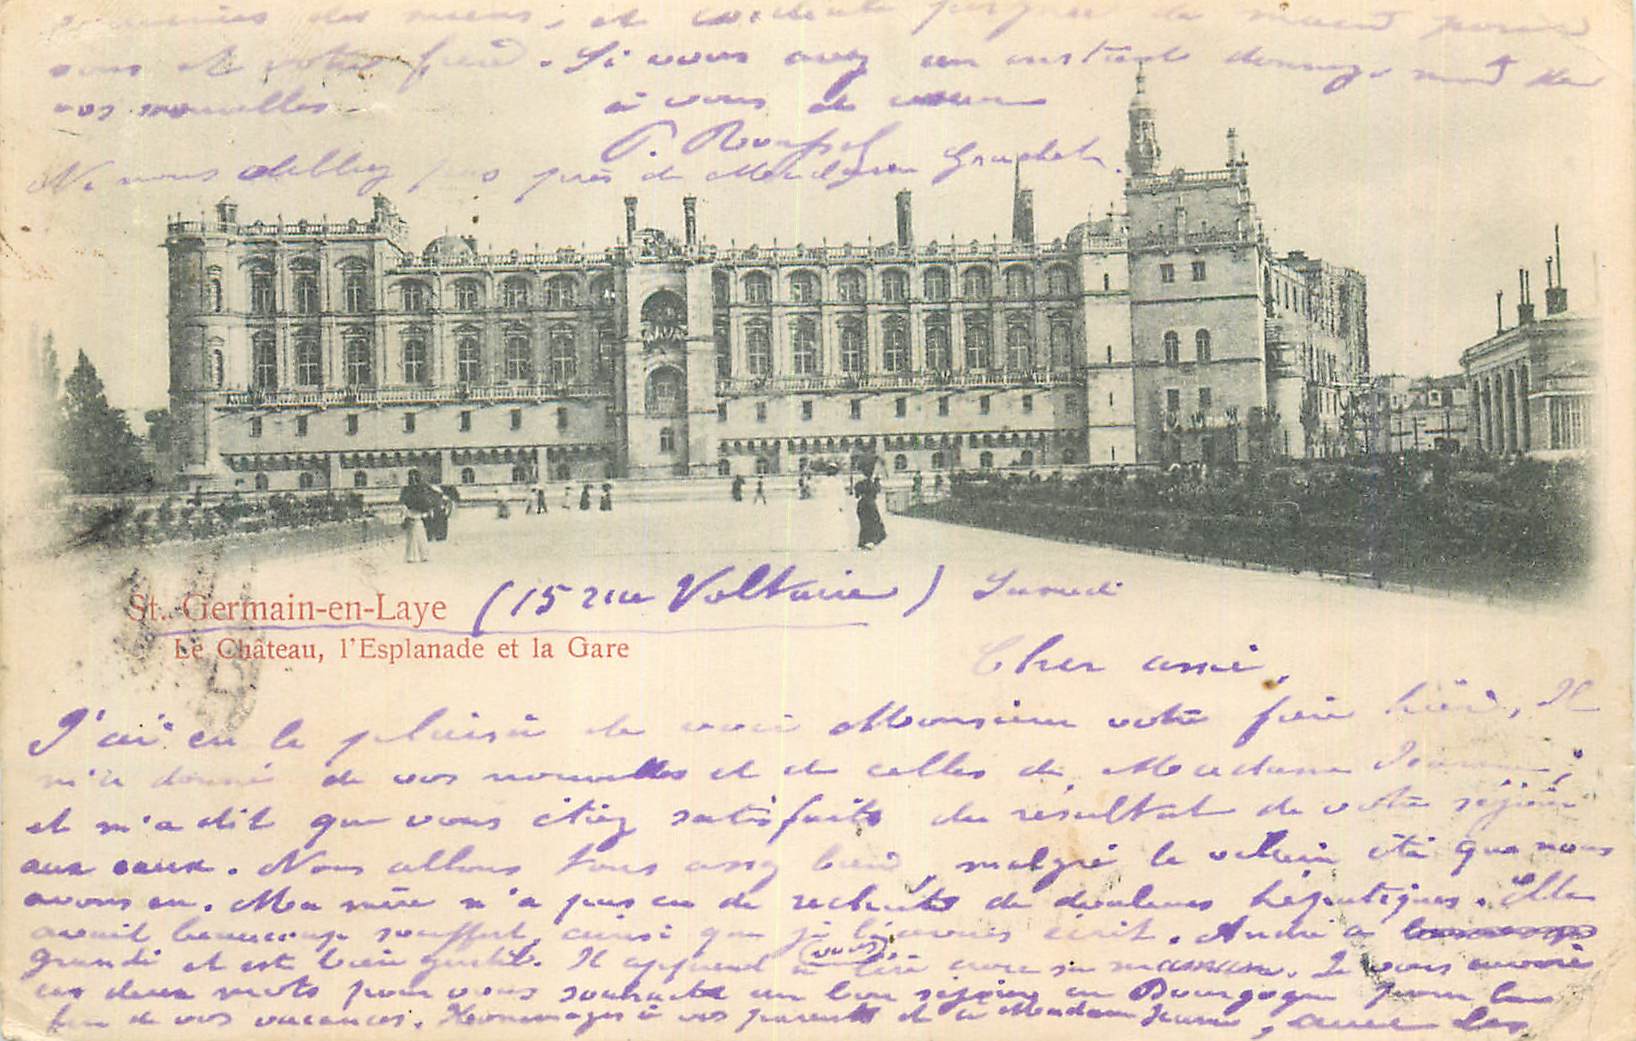 des miens, et
vous et votre frère. Si vous avez un instant donnez-moi de
vos nouvelles à vous de cœur
P. Roussel
Ne nous oubliez pas près de Madame
St.-Germain-en-Laye (15 rue Voltaire) Samedi
Le Château, l'Esplanade et la Gare
Cher ami,
J'ai eu le plaisir de voir Monsieur votre frère hier, Il
m'a donné de vos nouvelles et de celles de Madame Jeanne,
et m'a dit que vous étiez satisfaits du résultat de votre séjour
aux eaux. Nous allons tous assez bien, malgré le vilain été que nous
avons eu. Ma mère n'a pas eu de rechute de douleurs hépatiques. Elle
avait beaucoup souffert, ainsi que je l'avais écrit. André a
grandi et est bien gentil. Il apprend à lire avec sa maman. Je vous envoie
ces deux mots pour vous souhaiter un bon séjour en Bourgogne pour la
fin de vos vacances. Hommages à vos parents et à Madame Jeanne, avec les